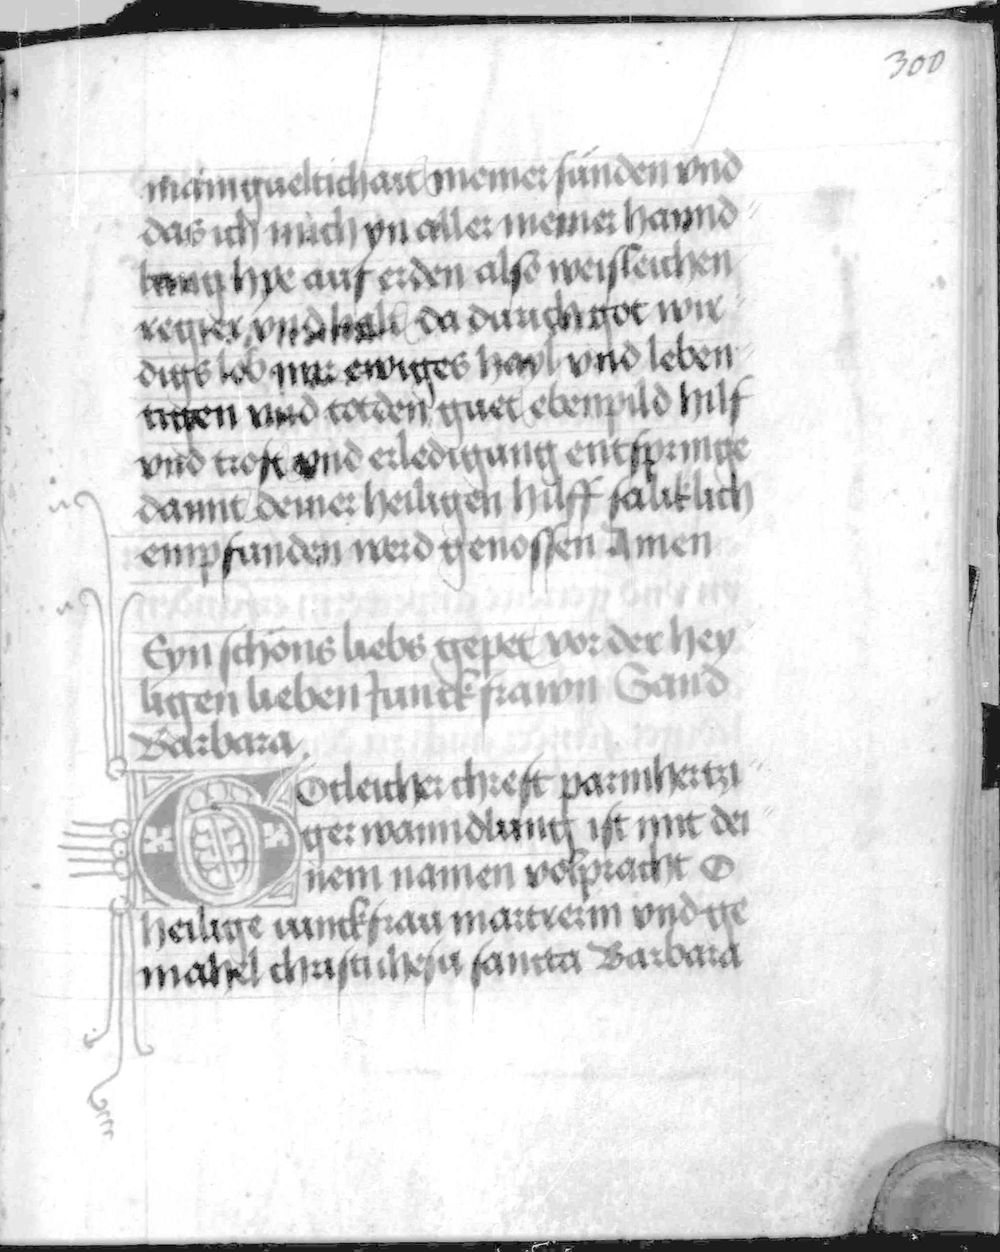 300
mainigueltichait meiner sünden vnd
das ich mich yn aller meiner hannd
lung hye auf erden also weisleichen
regier vnd halt da durich got wir
digs lob mir ewiges hayl vnd leben
tigen vnd totden guet ebenpild hilf
vnd trost vnd erledigung entspringe
damit deiner heiligen hilff säliklich
empfunden werd genossen Amen
Eyn schöns liebs gepet vor der hey
ligen lieben Junckfrawn Sand
Barbara
Gotleicher chreft parmhertzi
ger wanndlung ist mit dei
nem namen volpracht O
heilige iunckfrau martrerin vnd ge
mahel christi ihesu sancta Barbara